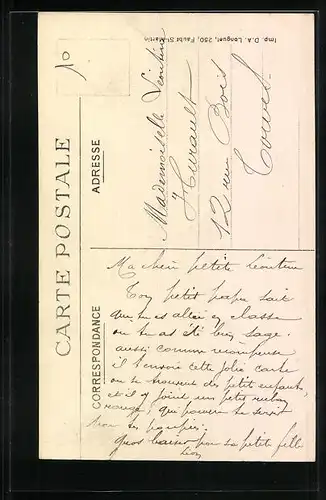 Imp. D.A. Longuet, 250, Faubg St-Martin
10
CARTE POSTALE
ADRESSE
Mademoiselle Léontine
Hurault
12 rue Bois
CORRESPONDANCE
Ma chère petite Léontine
Ton petit papa sait
que tu es allée en classe
où tu as été bien sage.
aussi comme récompense
il t'envoie cette jolie carte
où se trouvent des petits enfants,
et il y joint un petit ruban
rouge, qui pourra te servir
pour ses poupées.
Gros baiser pour sa petite fille
Léon